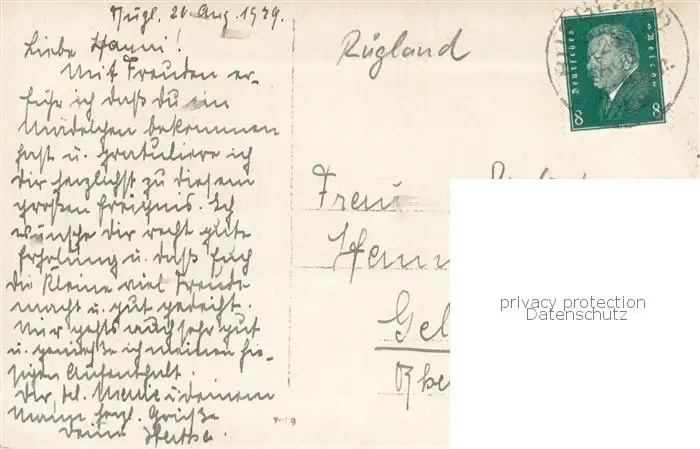 Rügl. 20 Aug. 1929.
Liebe Hanni!
Mit Freuden er-
fuhr ich daß du ein
Mädelchen bekommen
hast u. gratuliere ich
dir herzlichst zu diesem
großen Ereignis. Ich
wünsche Dir recht gute
Erholung u. daß Euch
die Kleine viel Freude
macht u. gut gedeiht.
Mir gehts auch sehr gut
u. genieße ich meinen hie-
sigen Aufenthalt.
Dir, u. deinem
Mann herzl. Grüße
Deine
Rügland
Deutsches Reich
8 8
Frau
Hann
Gel
Rhe
privacy protection
Datenschutz